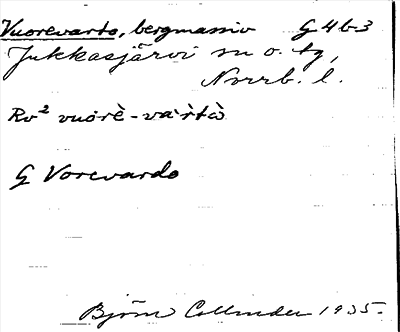 Vuorevarto, bergmassiv G 4b3
Jukkasjärvi sn o. tg,
Norrb. l.
Rv² vuόrè-và̀rtὸ
G Vorevardo
Björn Collinder 1935.